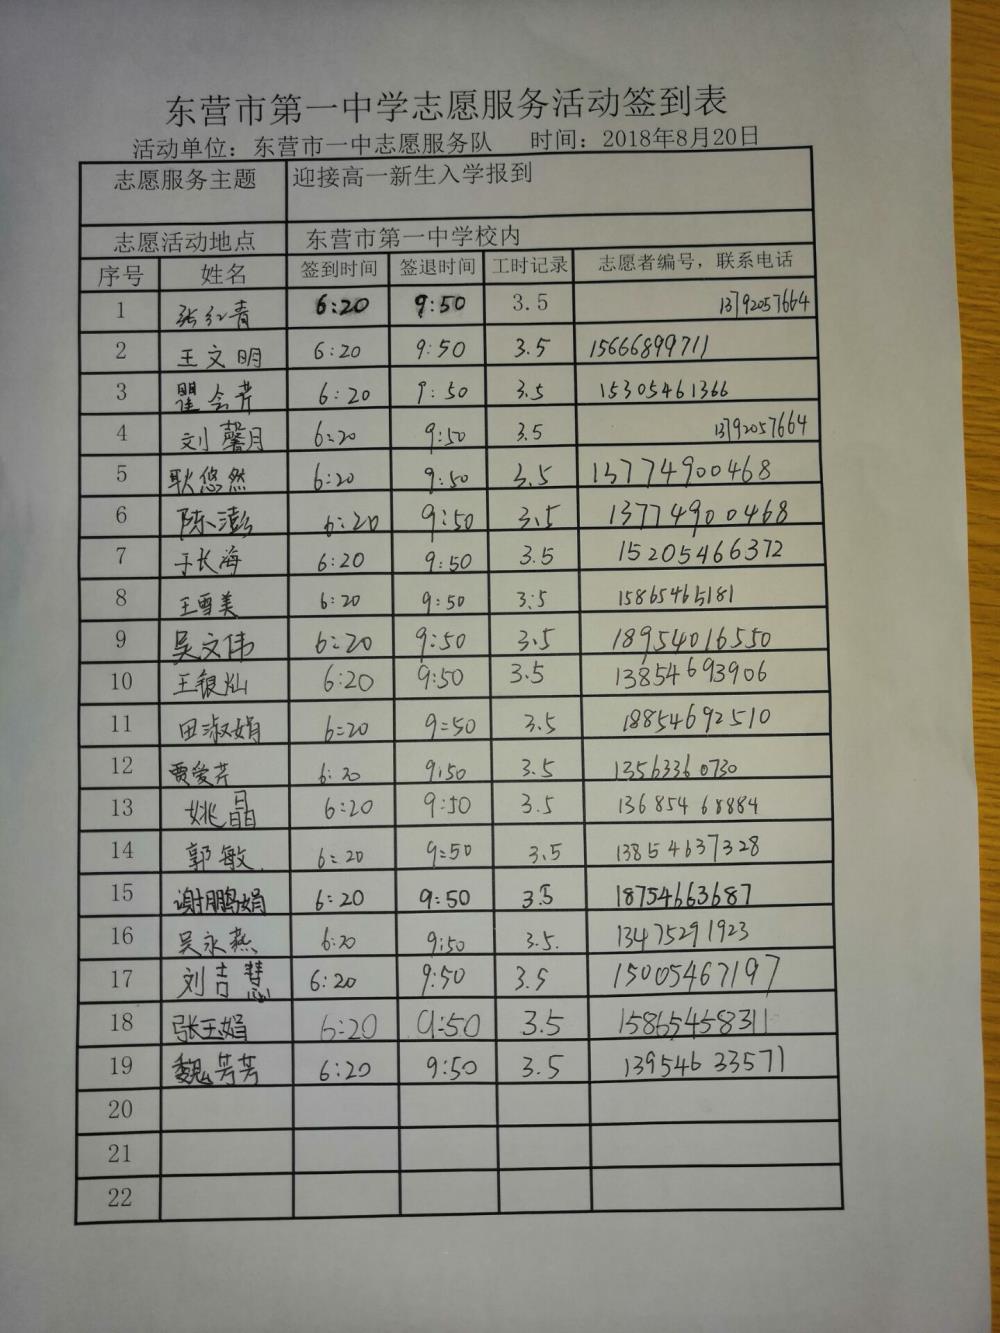 东营市第一中学志愿服务活动签到表
活动单位：东营市一中志愿服务队 时间：2018年8月20日
志愿服务主题 迎接高一新生入学报到
志愿活动地点 东营市第一中学校内
序号 姓名 签到时间 签退时间 工时记录 志愿者编号，联系电话
1 张红青 6:20 9:50 3.5 13792057664
2 王文明 6:20 9:50 3.5 15666899711
3 瞿会芹 6:20 9:50 3.5 15305461366
4 刘馨月 6:20 9:50 3.5 13792057664
5 耿悠然 6:20 9:50 3.5 13774900468
6 陈澎 6:20 9:50 3.5 13774900468
7 于长海 6:20 9:50 3.5 15205466372
8 王雪美 6:20 9:50 3.5 15865465181
9 吴文伟 6:20 9:50 3.5 18954016550
10 王银灿 6:20 9:50 3.5 13854693906
11 田淑娟 6:20 9:50 3.5 18854692510
12 贾爱芹 6:20 9:50 3.5 13563360730
13 姚晶 6:20 9:50 3.5 13685468884
14 郭敏 6:20 9:50 3.5 13854637328
15 谢鹏娟 6:20 9:50 3.5 18754663687
16 吴永燕 6:20 9:50 3.5. 13475291923
17 刘吉慧 6:20 9:50 3.5 15005467197
18 张玉娟 6:20 9:50 3.5 15865458311
19 魏芳芳 6:20 9:50 3.5 13954633571
20
21
22